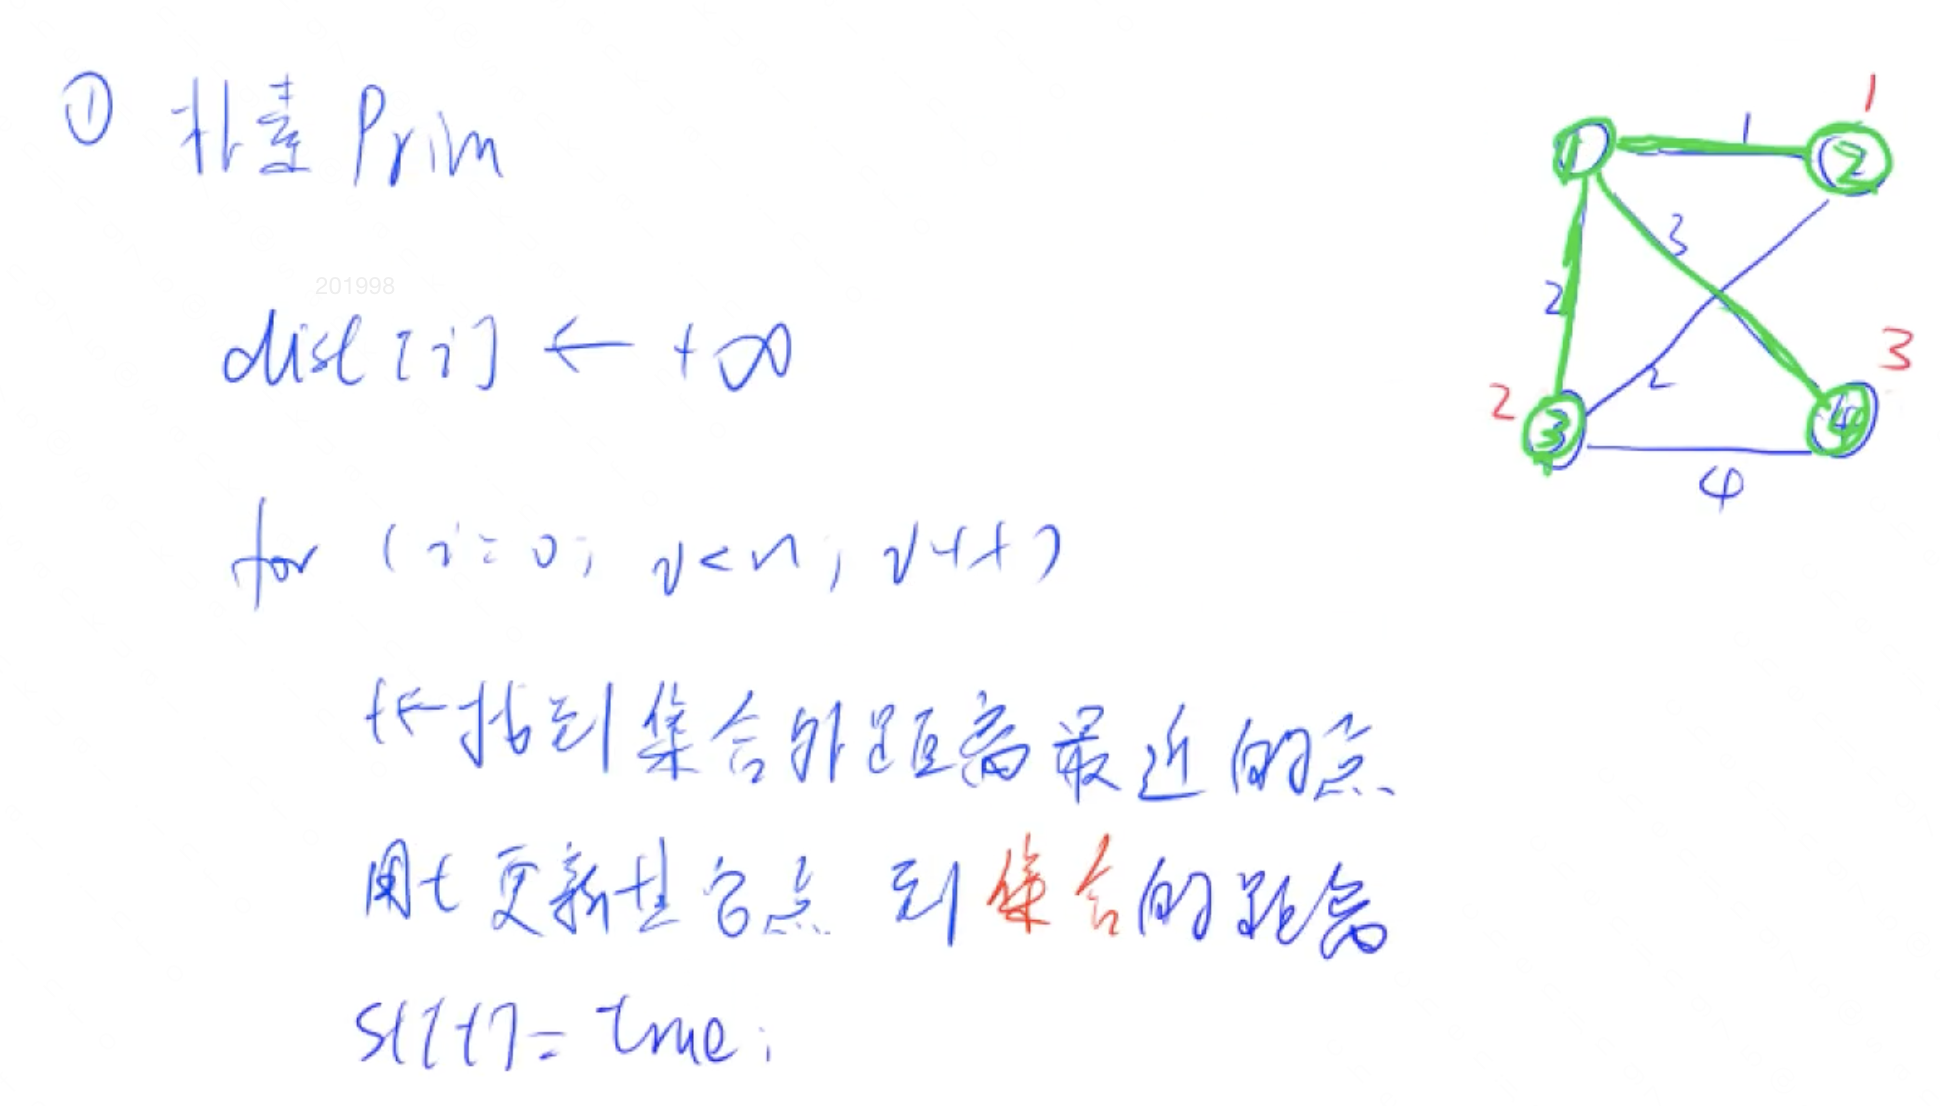 ① 朴素 Prim
201998
dist[i] ← +∞
for (i=0; i<n; i++)
t←找到集合外距离最近的点
用t更新其它点 到集合的距离
st[t]=true;
1
1
1
2
3
2
2
3
2
3
4
4